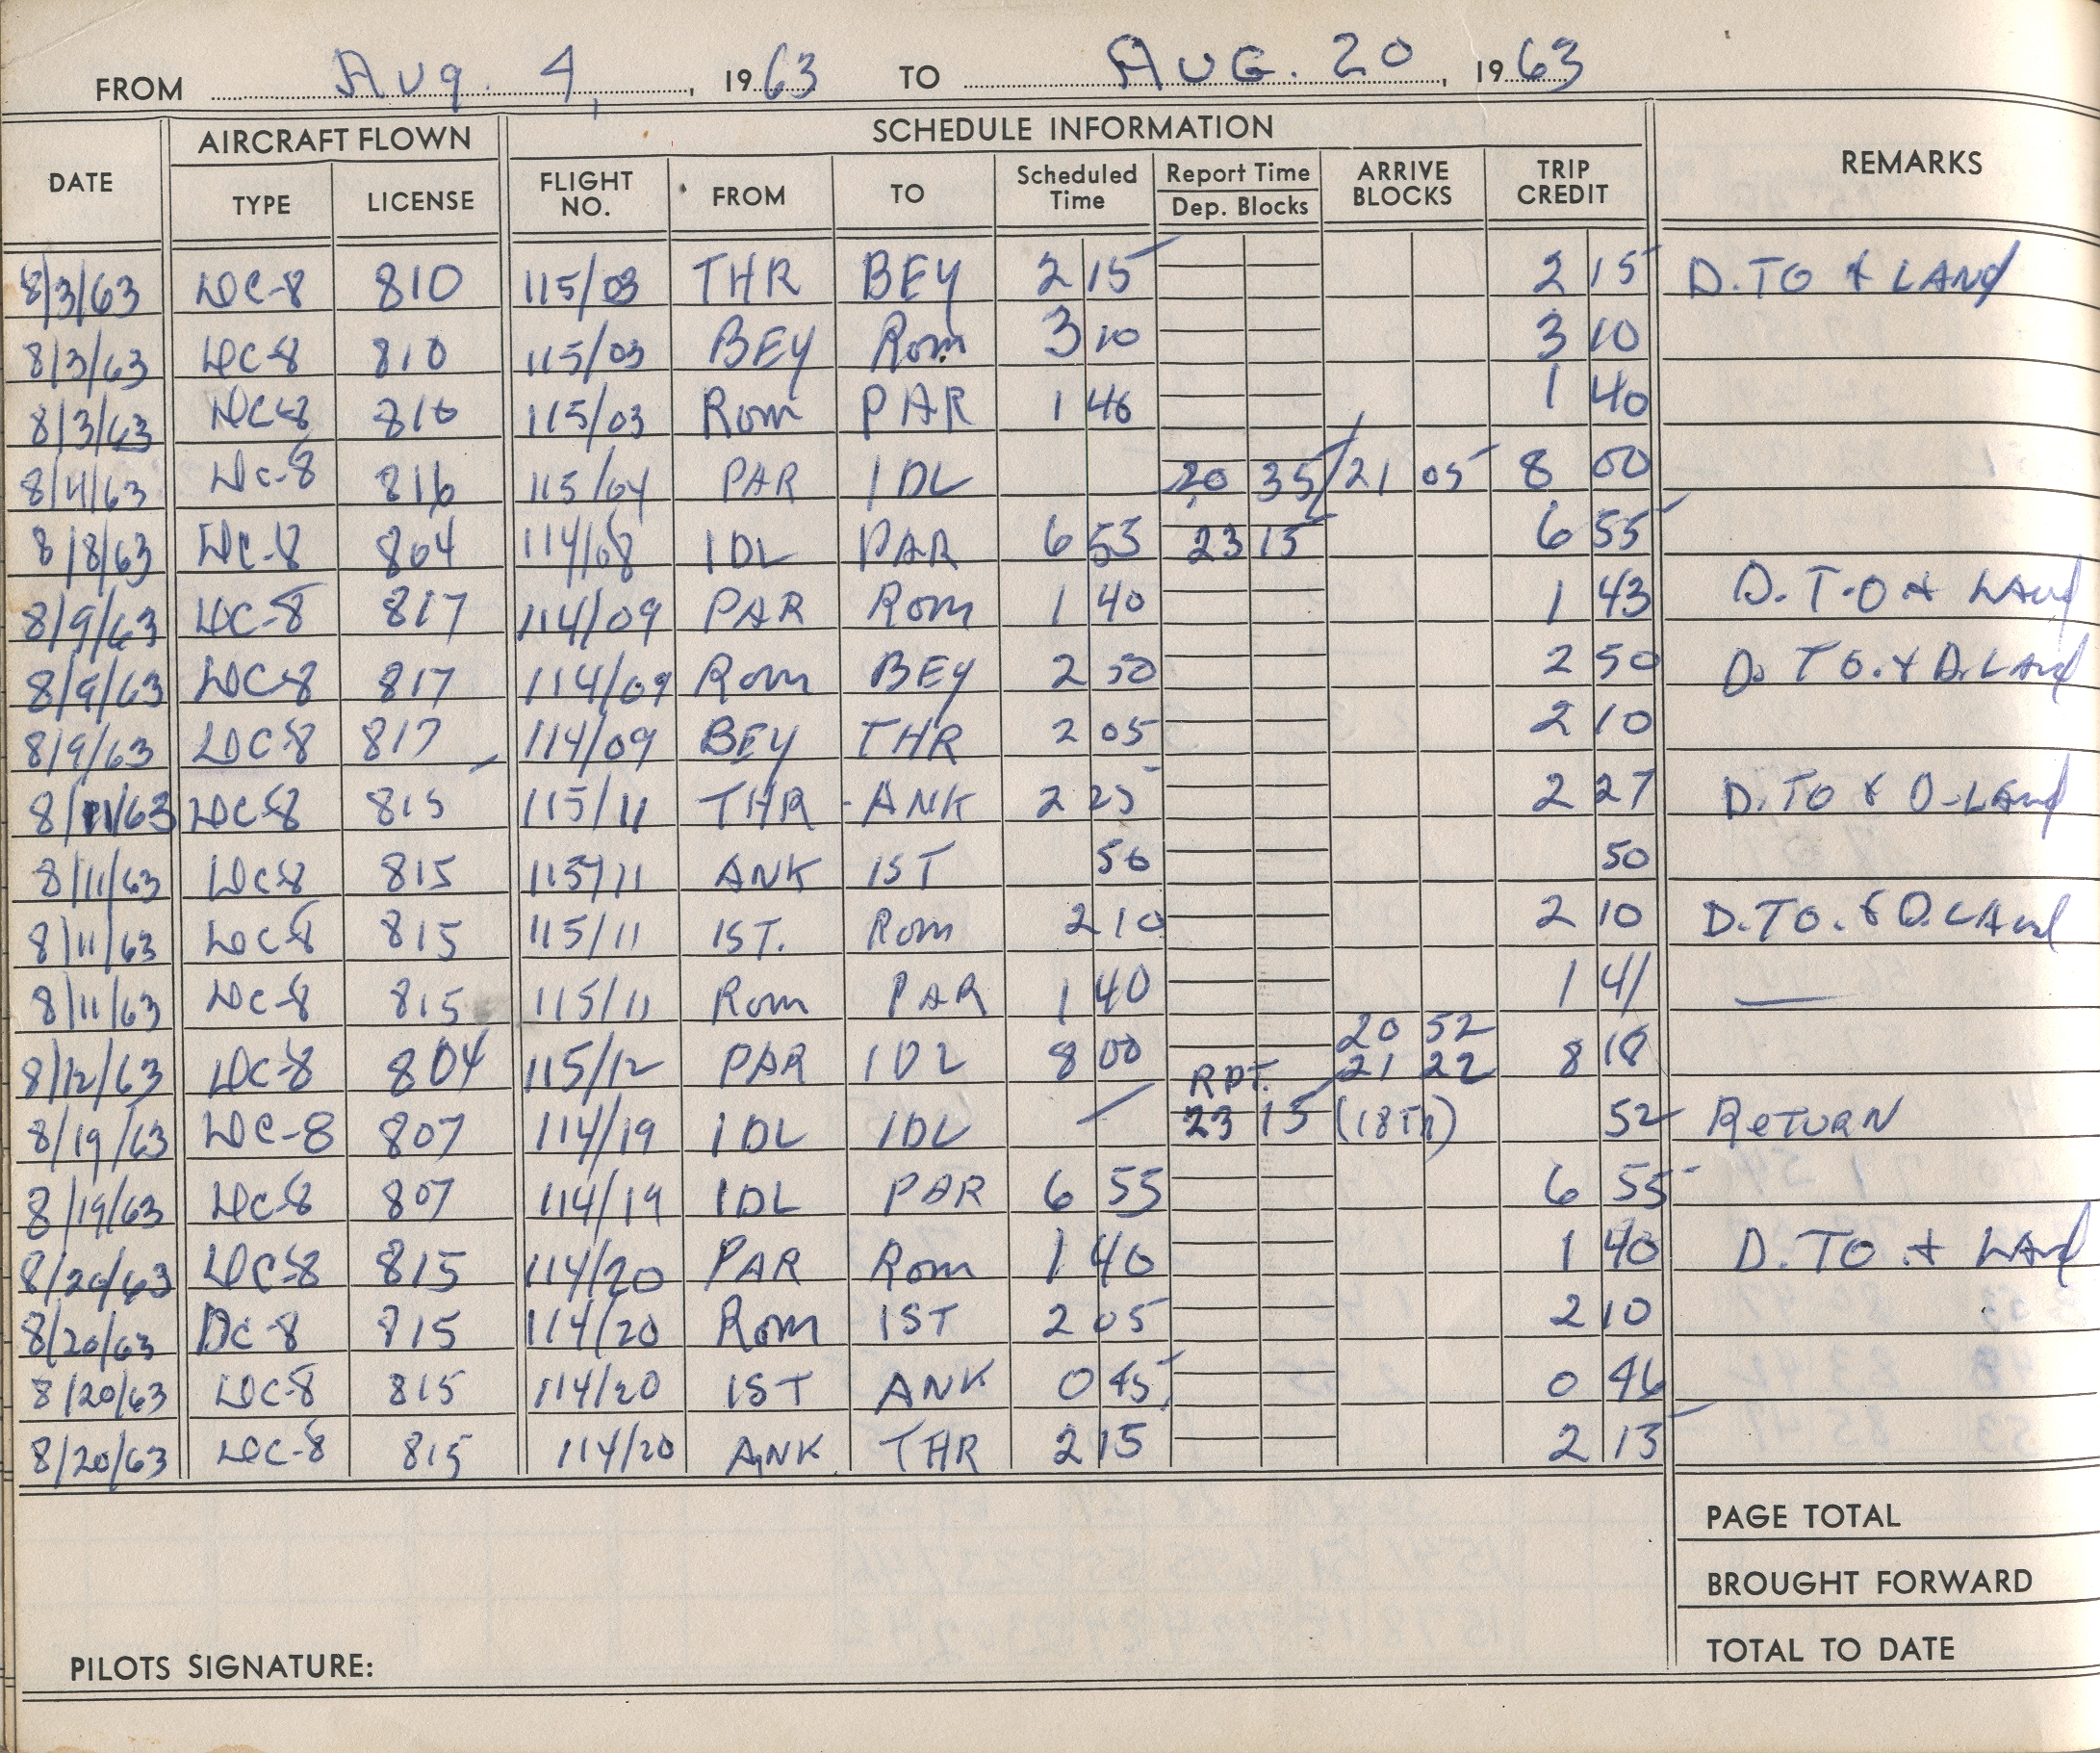 FROM Aug. 4, 1963 TO AUG. 20, 1963
DATE AIRCRAFT FLOWN SCHEDULE INFORMATION REMARKS
TYPE LICENSE FLIGHT NO. FROM TO Scheduled Time Report Time Dep. Blocks ARRIVE BLOCKS TRIP CREDIT
8/3/63 DC-8 810 115/03 THR BEY 2 15 2 15 D.TO & LAND
8/3/63 DC-8 810 115/03 BEY Rom 3 10 3 10
8/3/63 DC-8 810 115/03 Rom PAR 1 40 1 40
8/4/63 DC-8 816 115/04 PAR IDL 20 35 21 05 8 00
8/8/63 DC-8 804 114/08 IDL PAR 6 55 23 15 6 55
8/9/63 DC-8 817 114/09 PAR Rom 1 40 1 43 D. T-O & LAND
8/9/63 DC-8 817 114/09 Rom BEY 2 50 2 50 D. TO. & D. LAND
8/9/63 DC-8 817 114/09 BEY THR 2 05 2 10
8/11/63 DC-8 815 115/11 THR - ANK 2 25 2 27 D. TO & D-LAND
8/11/63 DC-8 815 115/11 ANK IST 50 50
8/11/63 DC-8 815 115/11 IST. Rom 2 10 2 10 D.TO. & D. LAND
8/11/63 DC-8 815 115/11 Rom PAR 1 40 1 41 —
20 52
8/12/63 DC-8 804 115/12 PAR IDL 8 00 21 22 8 18
RPT.
8/19/63 DC-8 807 114/19 IDL IDL 23 15 (18TH) 52 RETURN
8/19/63 DC-8 807 114/19 IDL PAR 6 55 6 55
8/20/63 DC-8 815 114/20 PAR Rom 1 40 1 40 D. TO & LAND
8/20/63 DC-8 815 114/20 Rom IST 2 05 2 10
8/20/63 DC-8 815 114/20 IST ANK 0 45 0 46
8/20/63 DC-8 815 114/20 ANK THR 2 15 2 15
PAGE TOTAL
BROUGHT FORWARD
TOTAL TO DATE
PILOTS SIGNATURE: